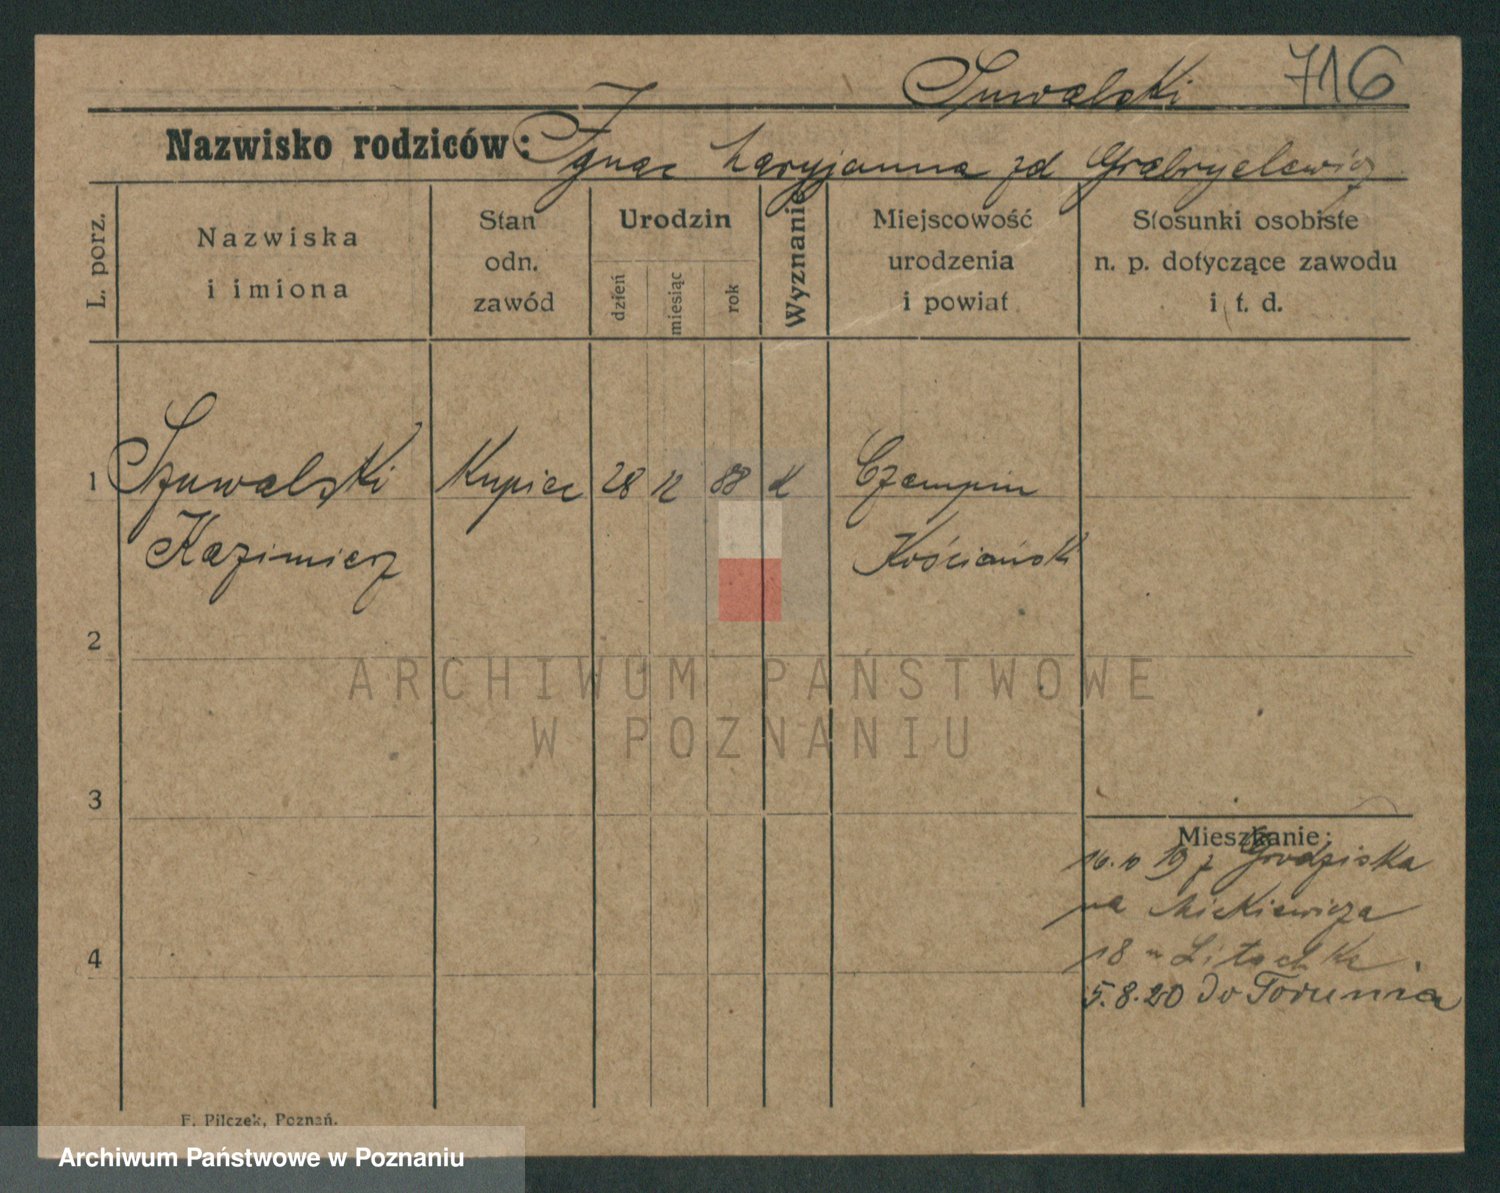 Suwalski 716
Nazwisko rodziców: Ignac Maryjanna zd Grabryelewicz
L. porz.
Nazwiska i imiona
Stan odn. zawód
Urodzin
dzień
miesiąc
rok
Wyznanie
Miejscowość urodzenia i powiat
Stosunki osobiste n. p. dotyczące zawodu i t. d.
1 Szuwalski Kupiec 28 12 88 K Czempin
Kazimierz Kościański
2
3
4
Mieszkanie:
16.10 19 z Grodziska
na Mickiewicza
18
5.8.20 do Torunia
F. Pilczek, Poznań.
ARCHIWUM PAŃSTWOWE
W POZNANIU
Archiwum Państwowe w Poznaniu